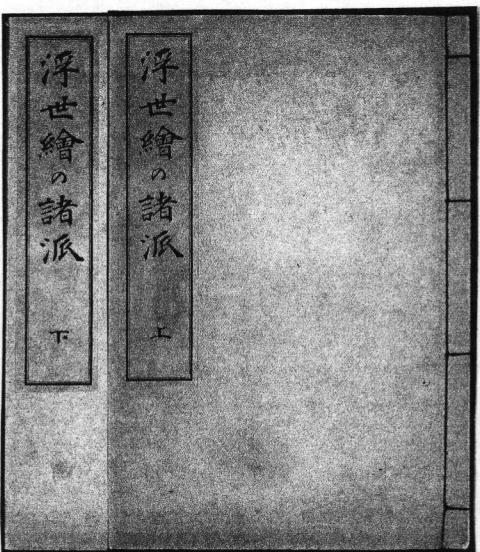 浮世繪の諸派 上
浮世繪の諸派 下